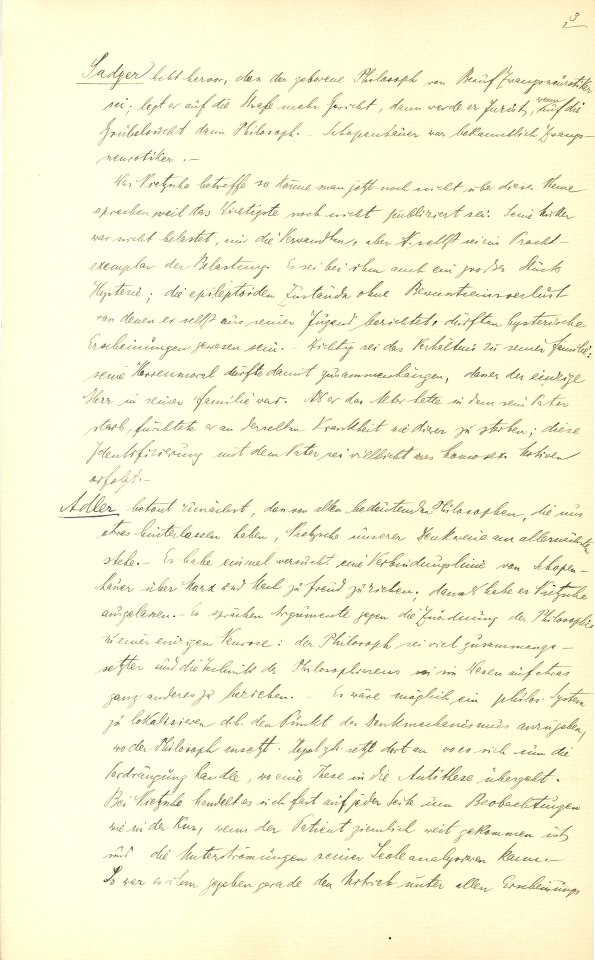 3
Sadger hebt hervor, dass der geborene Philosoph von Beruf Zwangsneurotiker
sei; legt er auf die Strafe mehr Gewicht, dann werde er Jurist, wenn auf die
Grübelsucht dann Philosoph. – Schopenhauer war bekanntlich Zwangs-
neurotiker. –
Was Nietzsche betreffe so könne man jetzt noch nicht über dieses Thema
sprechen weil das Wichtigste noch nicht publiziert sei. Seine Mutter
war nicht belastet, nur die Verwandten, aber N. selbst sei ein Pracht-
exemplar der Belastung. Es sei bei ihm auch ein großes Stück
Hysterie; die epileptoiden Zustände ohne Bewusstseinsverlust
von denen er selbst aus seiner Jugend berichtet, dürften hysterische
Erscheinungen gewesen sein. – Wichtig sei das Verhältnis zu seiner Familie:
seine Herrenmoral dürfte damit zusammenhängen, dass er der einzige
Herr in seiner Familie war. Als er das Alter hatte in dem sein Vater
starb, fürchtete er an derselben Krankheit wie dieser zu sterben; diese
Identifizierung mit dem Vater sei vielleicht aus homosex. Motiven
erfolgt. –
Adler betont zunächst, dass von allen bedeutenden Philosophen, die uns
etwas hinterlassen haben, Nietzsche unserer Denkweise am allernächsten
stehe. – Er habe einmal versucht eine Verbindungslinie von Schopen-
hauer über Marx und Mach zu Freud zu ziehen. damals habe er Nietzsche
ausgelassen. – Es sprächen Argumente gegen die Zuordnung der Philosophie
zu einer einzigen Neurose: der Philosoph sei viel zusammenge-
setzter und die Technik des Philosophierens sei im Wesen auf etwas
ganz anderes zu beziehen. – Es wäre möglich ein philos. System
zu lokalisieren d.h. den Punkt des Denkmechanismus anzugeben,
wo der Philosoph ansetzt. Hegel z.B. setzt dort an wo es sich um die
Verdrängung handle, wo eine These in die Antithese übergeht.
Bei Nietzsche handelt es sich fast auf jeder Seite um Beobachtungen
wie in der Kur, wenn der Patient ziemlich weit gekommen ist
und die Unterströmungen seiner Seele analysieren kann. –
So war es ihm gegeben gerade den Urtrieb unter allen Erscheinungs